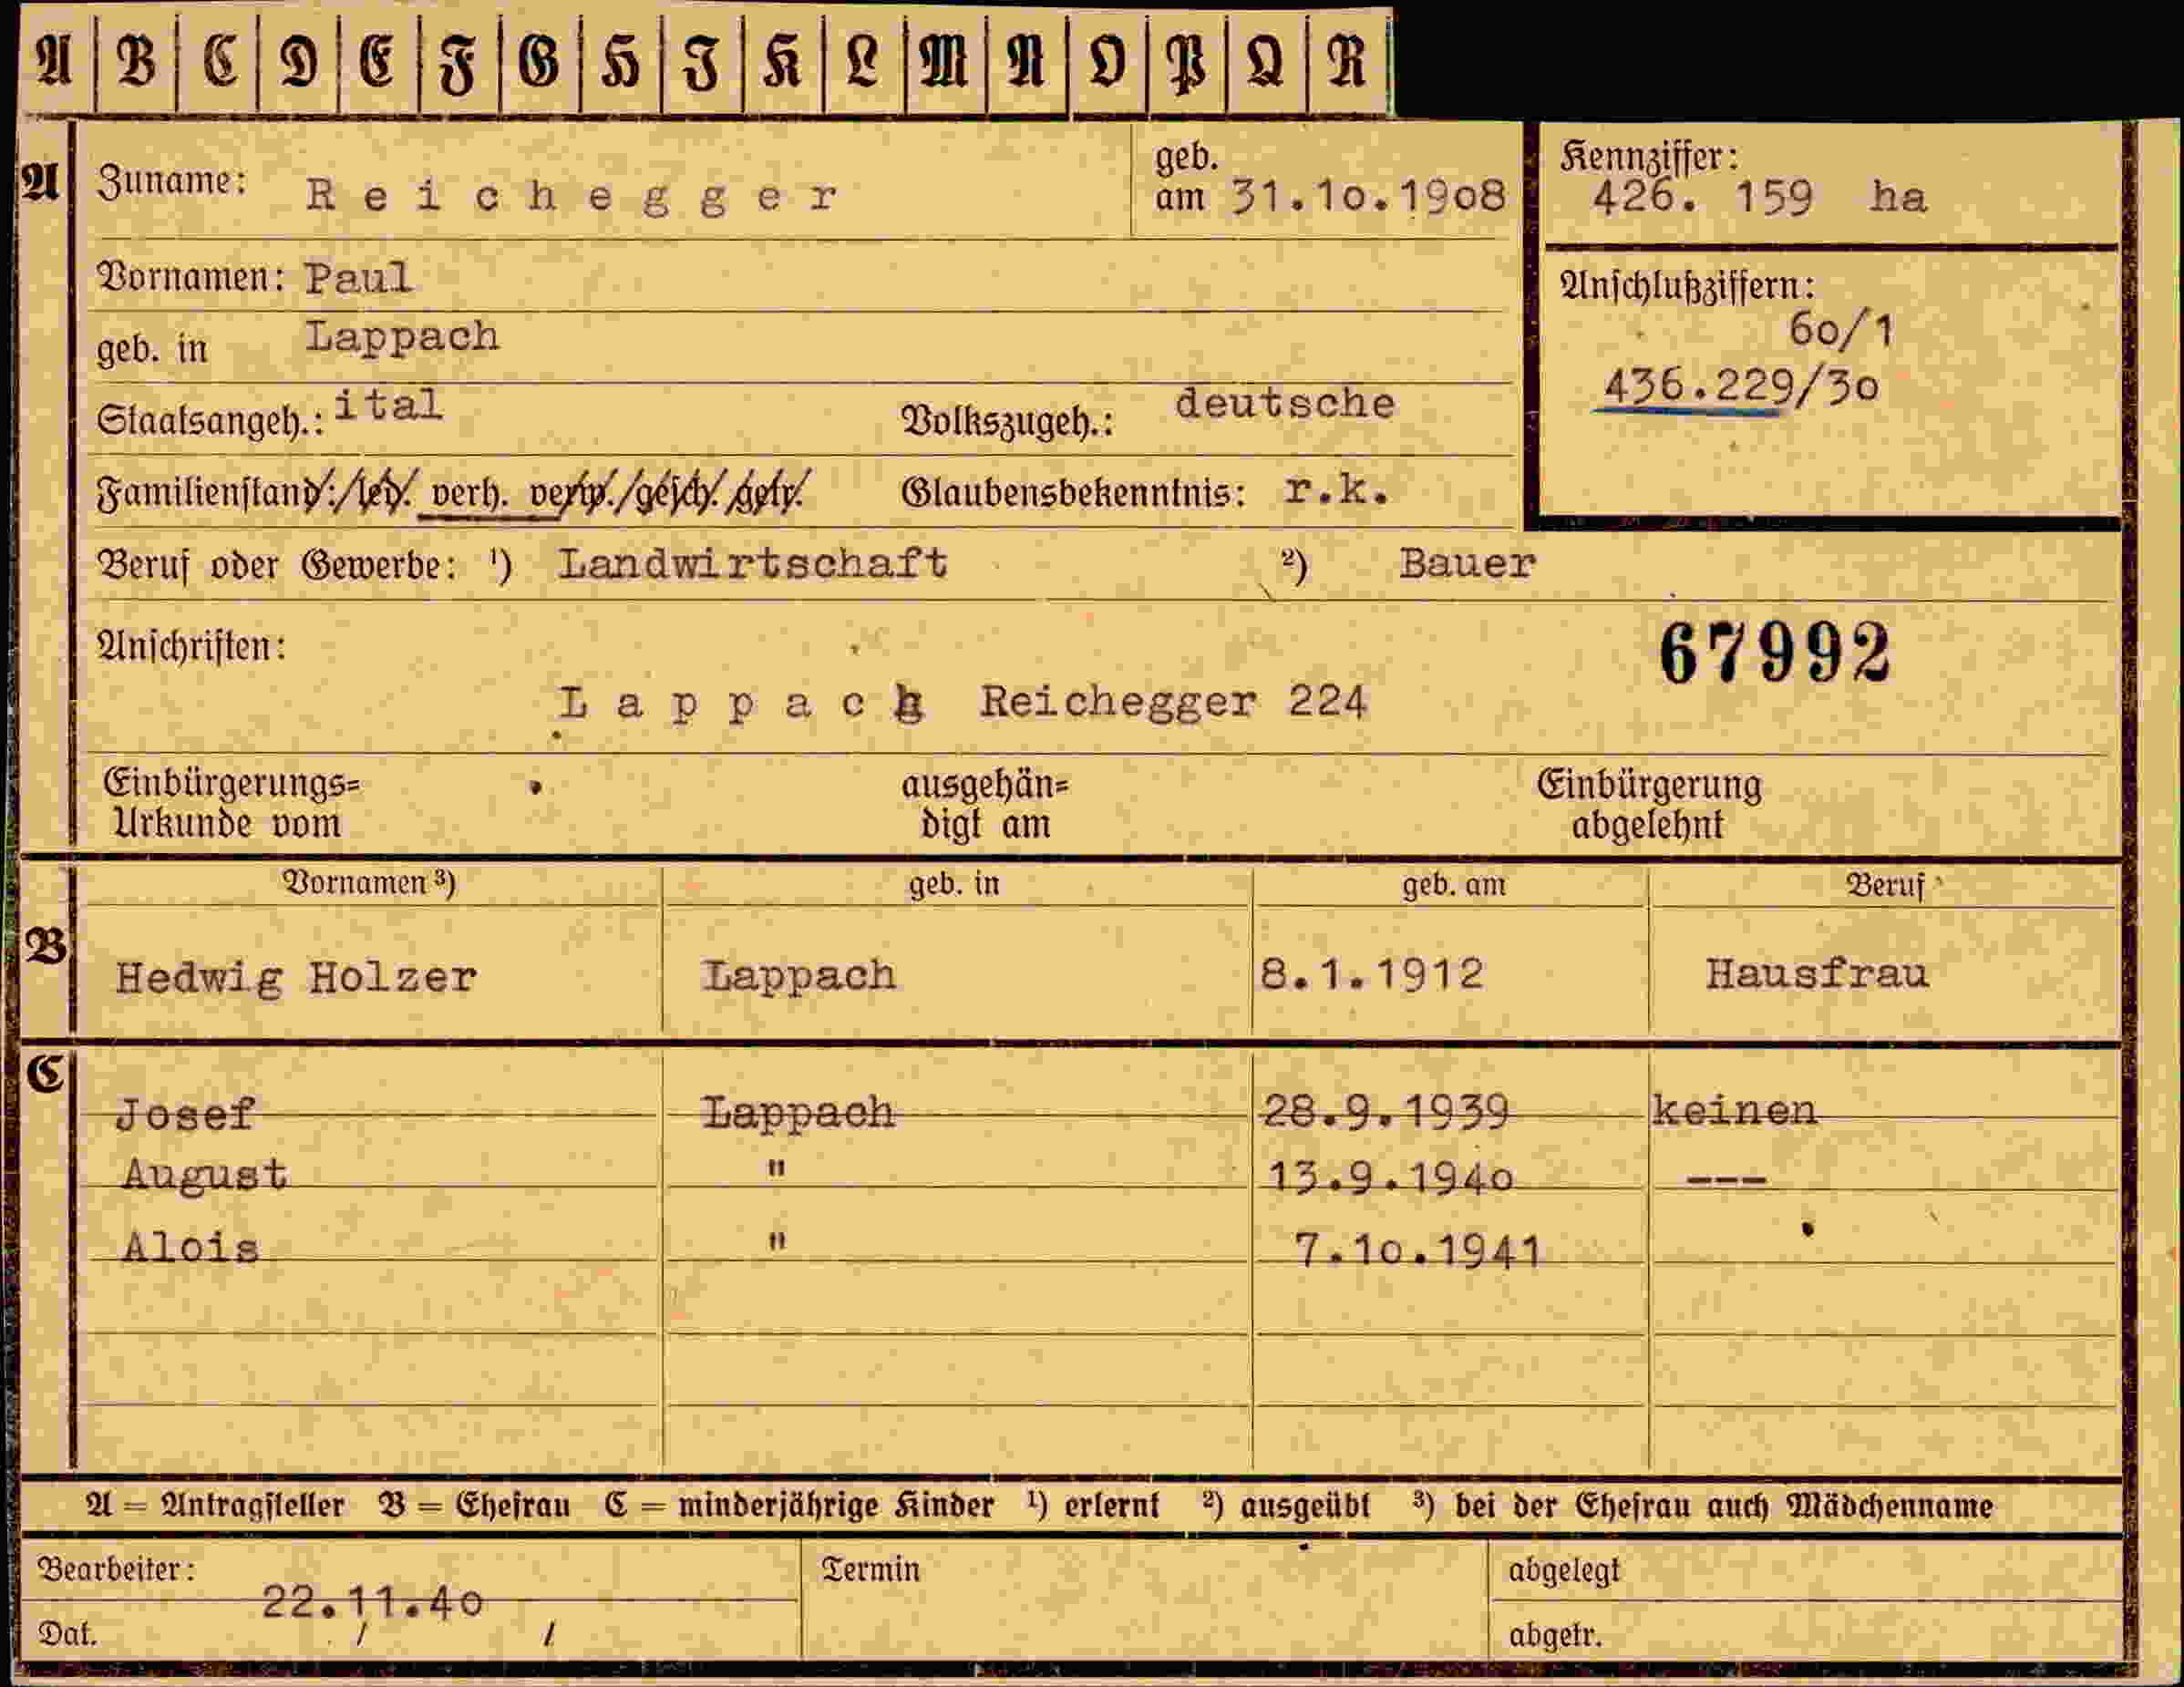 A B C D E F G H I K L M N O P Q R
A Zuname: Reichegger geb. am 31.10.1908 Kennziffer: 426. 159 ha
Vornamen: Paul
Anschlußziffern:
60/1
geb. in Lappach
436.229/30
Staatsangeh.: ital Volkszugeh.: deutsche
Familienstand: led. verh. verw. gesch. getr. Glaubensbekenntnis: r.k.
Beruf oder Gewerbe: ¹) Landwirtschaft ²) Bauer
Anschriften: 67992
Lappach Reichegger 224
Einbürgerungs= ausgehän= Einbürgerung
Urkunde vom digt am abgelehnt
Vornamen ³) geb. in geb. am Beruf
B Hedwig Holzer Lappach 8.1.1912 Hausfrau
C
Josef Lappach 28.9.1939 keinen
August " 13.9.1940 ---
Alois " 7.10.1941
A = Antragsteller B = Ehefrau C = minderjährige Kinder ¹) erlernt ²) ausgeübt ³) bei der Ehefrau auch Mädchenname
Bearbeiter: Termin abgelegt
22.11.40
Dat. / / abgetr.